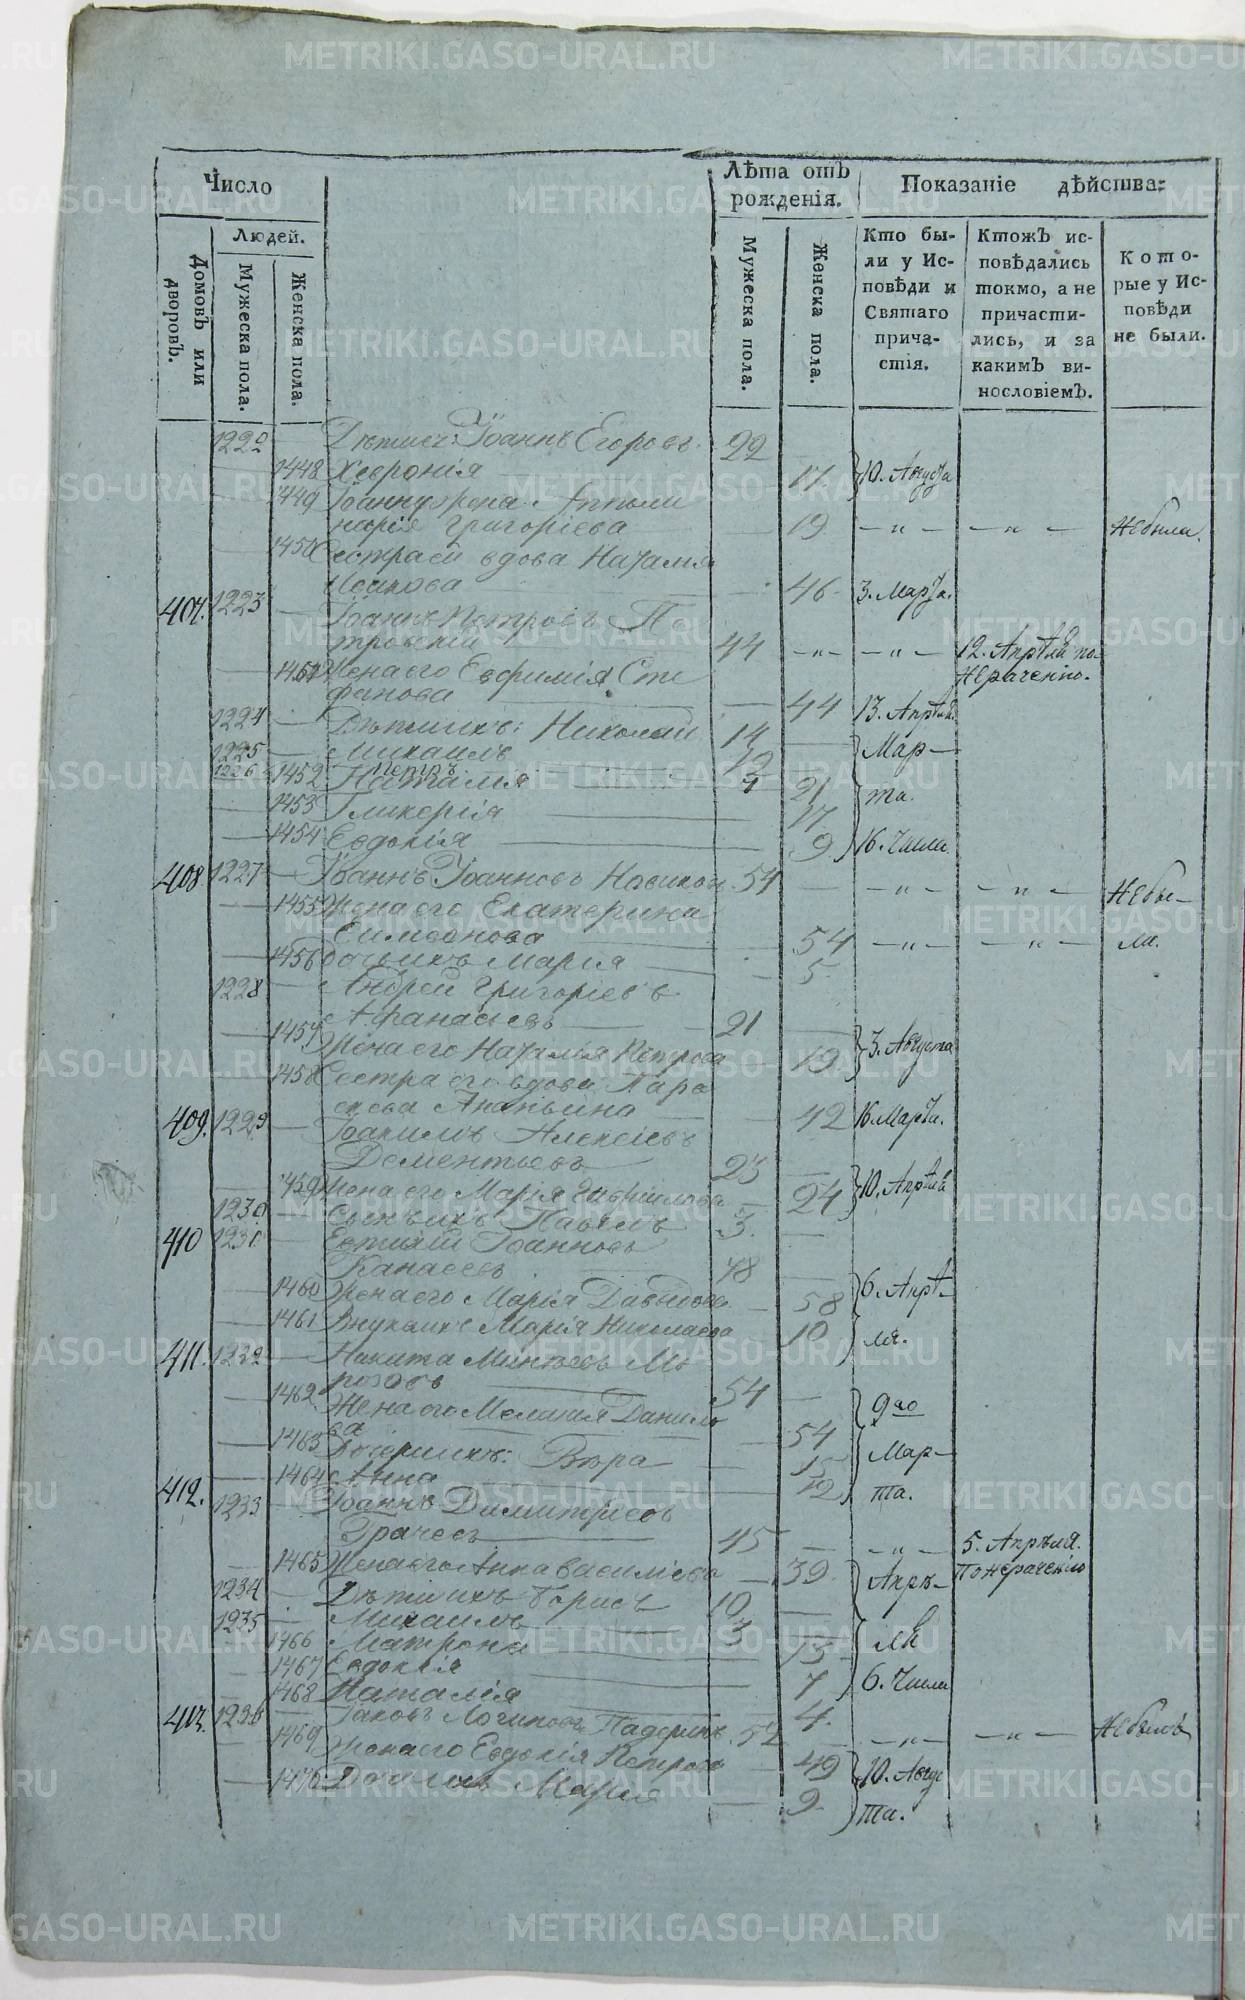 METRIKI.GASO-URAL.RU
Число
Людей.
Домовъ или дворовъ.
Мужеска пола.
Женска пола.
Лѣта отъ рожденія.
Мужеска пола.
Женска пола.
Показаніе дѣйства:
Кто бы-
ли у Ис-
повѣди и
Святаго
прича-
стія.
Ктожъ ис-
повѣдались
токмо, а не
причасти-
лись, и за
какимъ ви-
нословіемъ.
Кото-
рые у Ис-
повѣди
не были.
1222 — Іоаннъ Егоровъ 22
1448 Хеѵронія 17 10. Августа
1449 Аполи
нарія Григоріева 19 — „ — — „ — Небыла.
1450 Сестра ей вдова Наталия
Исакова 46 3. Марта.
407. 1223 — Іоаннъ Петровъ Пе
тровскій 44 — „ — — „ — 12. Апрѣля по
нераченію.
1451 Жена его Евфимія Сте
фанова 44 13. Апрѣля
1224 — Дѣти ихъ: Николай 14
1225 — Михаилъ 12 Мар-
1226 Петръ 7
1452 Наталия 21 та.
1453 Гликерія 17
1454 Евдокія 9 16. Числа
408 1227 — Іоаннъ Іоанновъ 54 — „ — — „ — Небы-
1455 Жена его Екатерина
Симеонова 54 — „ — — „ — ли.
1456 Дочь ихъ Марія 5
1228 — Андрей Григоріевъ
Афанасьевъ 21
1457 Жена его Наталья Петрова 19 3. Августа
1458 Сестра его вдова Пара
скева Ананьина 42 16. Марта.
409. 1229 — Іоакимъ Алексіевъ
Дементьевъ 23
1459 Жена его Марія Гавріилова 24 10. Апрѣля
1230. — Сынъ ихъ Павелъ 3.
410 1231 — Евтихій Іоанновъ
Канаевъ 48
1460 Жена его Марія Давыдова 58 6. Апрѣ-
1461 Внука ихъ Марія Николаева 10 ля.
411. 1232 — Никита Минѣевъ Мо
розовъ 54
1462 Жена его Меланія Данило
ва 54 9го
1463 Дочери ихъ: Вѣра 15 Мар-
1464 Анна 12 та.
412. 1233 — Іоаннъ Димитріевъ
Грачевъ 45 — „ — 5. Апрѣля.
1465 Жена его Анна Василіева 39 Апрѣ- По нераченію
1234 — Дѣти ихъ Борисъ 10
1235 — Михаилъ 3
1466 Матрона 13 ля
1467 Евдокія 7 6. Числа
1468 Наталія 4.
413. 1236 — Іаковъ Логиновъ Падеринъ 52 — „ — — „ — Небылъ
1469 Жена его Евдокія Петрова 49 10. Авгус
1470 Дочь ихъ Марія 9 та.